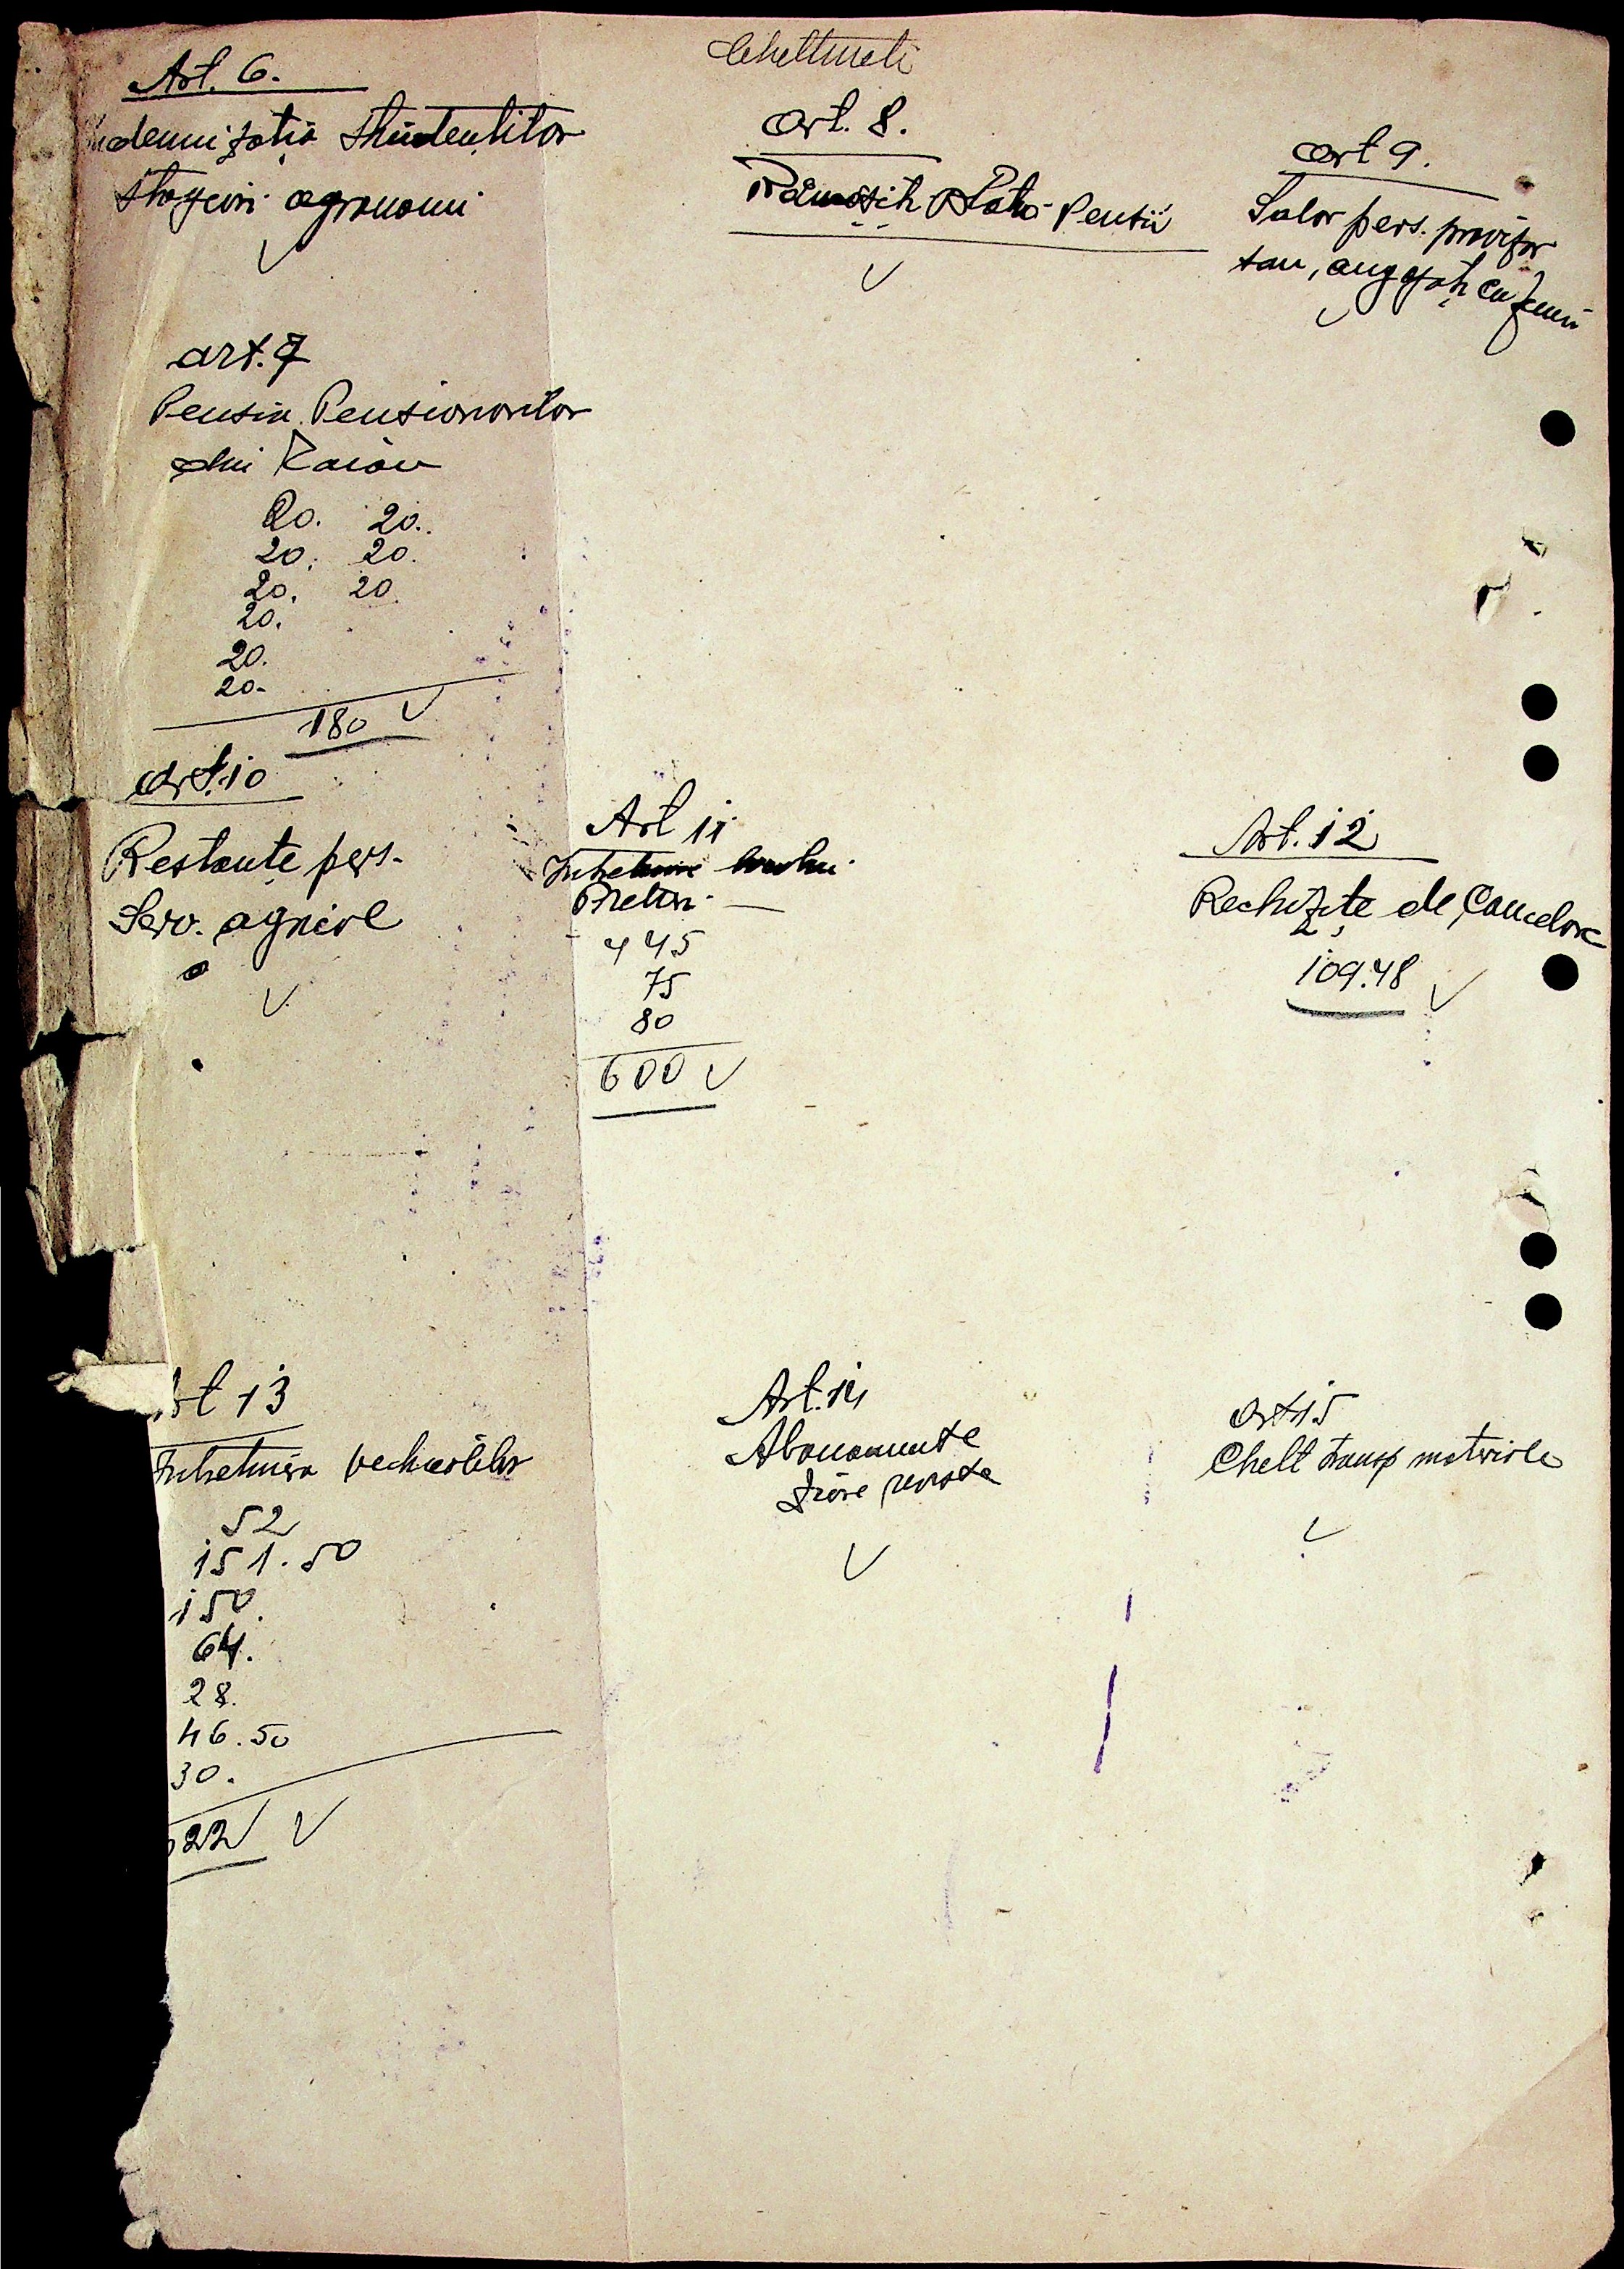 Cheltueli
Art. 6.
Indemnizatia Studentilor
Stageiri agronomi
√
Art. 8.
Ramasite Plata Pensii
√
Art 9.
Salar pers. provizor
sau, angajati cu
√
Art. 7
Pensia Pensionarilor
din Raion
20. 20.
20. 20.
20. 20
20.
20.
20.
180 √
Art. 10
Restanțe pers.
Serv. agricol
√
Art 11
Intretinere
445
75
80
600 √
Art. 12
Rechizite de Cancelare
109.48 √
Art 13
Intretinerea vehiculelor
52
151.50
150.
64.
28.
46.50
30.
522 √
Art. 14
Abonamente
ziare reviste
√
Art 15
Chelt transp materiale
√